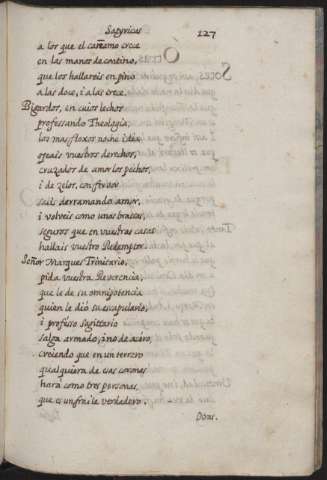 Satyricas
127
a los que el cañamo crece
en las manos de contino,
que los hallareis en pino
a las doce, i a las trece.
Bigardos, en cuios lechos
professando Theologia,
los mas floxos noche i dia
ojeais vuestros derechos,
cruzados de amor los pechos,
i de zelos, con fervor
sais derramando amor,
i volveis como unas brasas,
seneros que en vuestras casas
hallais vuestro Redemptor.
Señor Marques Trinitario,
pida vuestra Reverencia,
que le de su omnipotencia
quien le dió su escapulario,
i professo sagittario
salga armado, i no de acero,
creiendo que en un terrero
qualquiera de sus coronas
hará como tres personas,
que es un fraile verdadero.
Don.